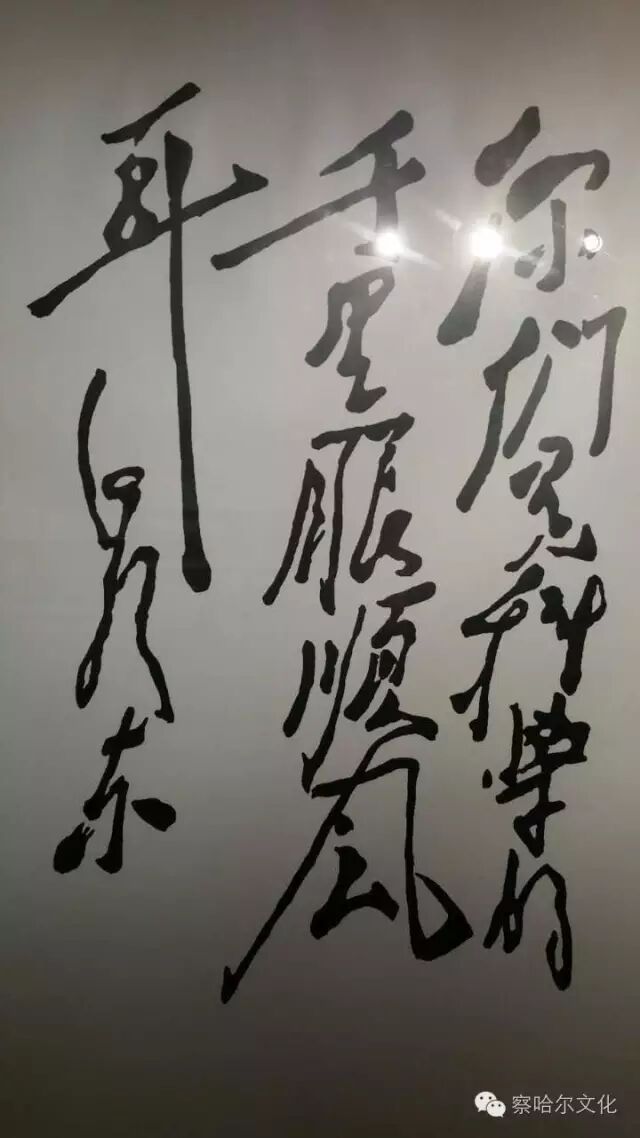 你们是科學的
千里眼順風
耳 毛泽东
察哈尔文化